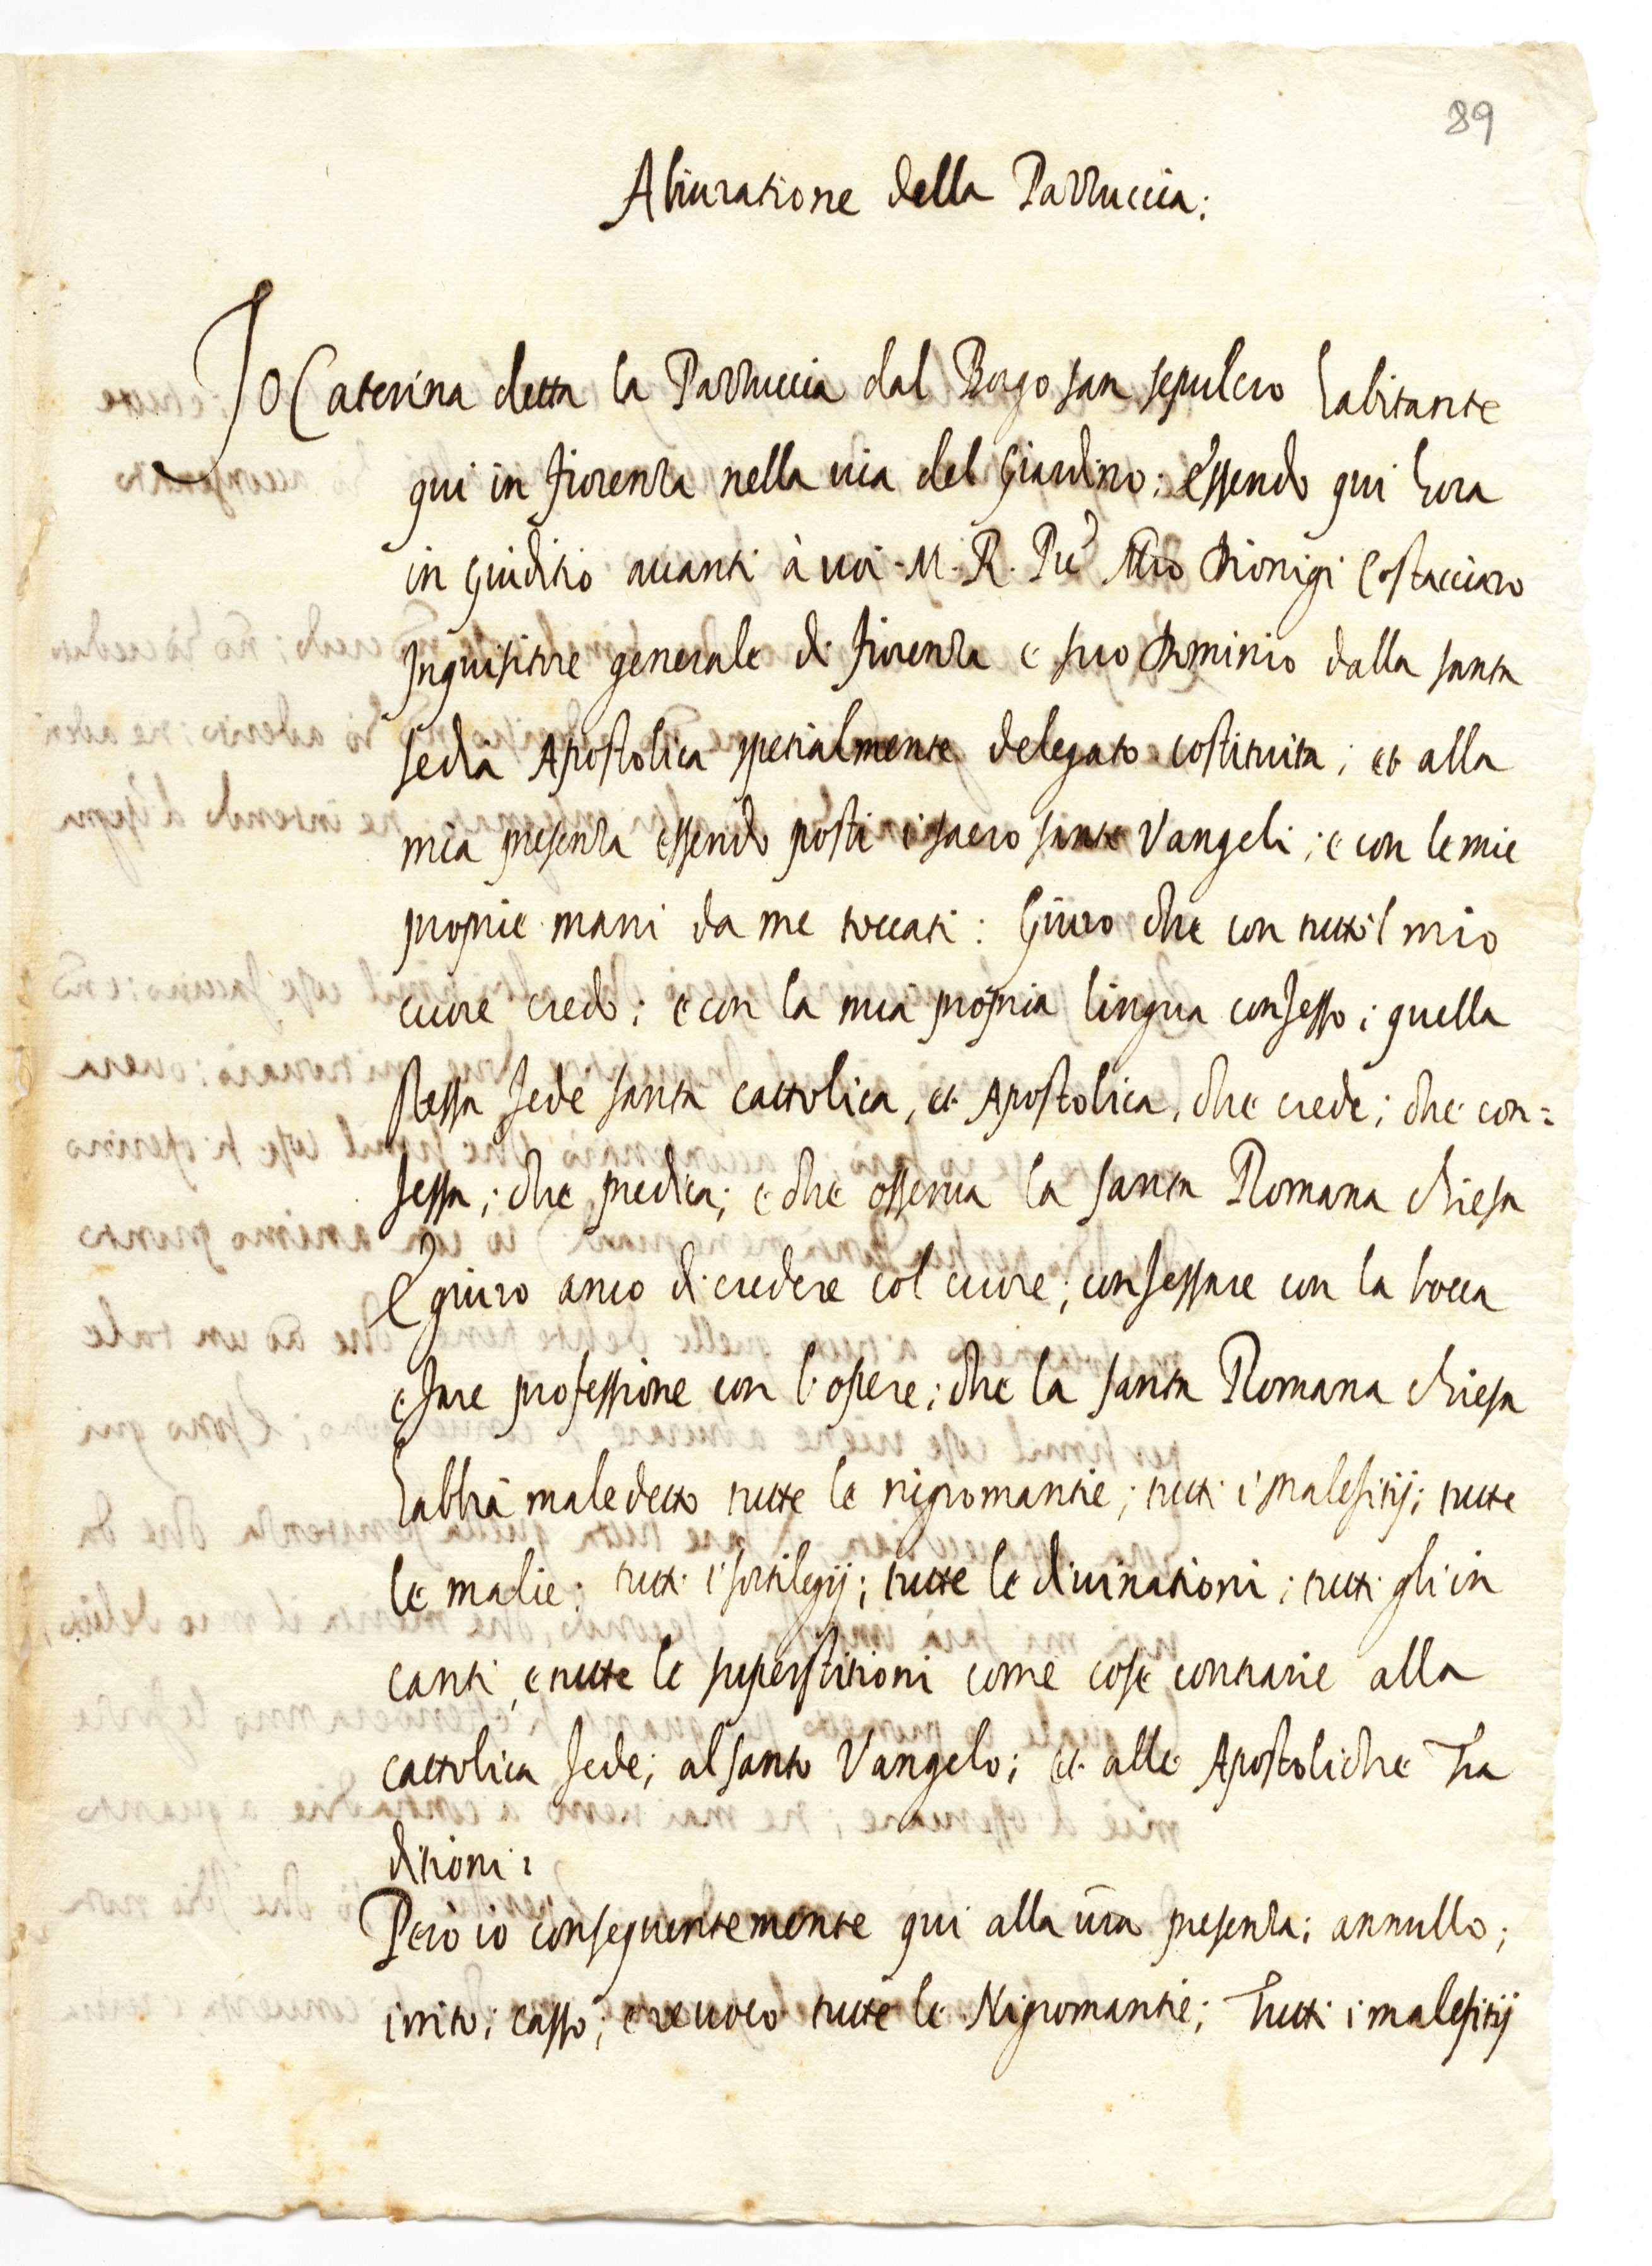 89
Abiuratione della Pazzuccia:
Io Caterina detta la Pazzuccia dal Borgo san sepulcro habitante
qui in fiorenza nella uia del Giardino: Essendo qui hora
in Giuditio auanti à uoi. M. R. Pre Mro Dionigi Costacciaro
Inquisitore generale di fiorenza e suo Dominio dalla santa
sedia Apostolica spetialmente delegato costituita; et alla
mia presenza essendo posti i sacro sante Vangeli; e con le mie
proprie mani da me toccati: Giuro che con tutto'l mio
cuore credo; e con la mia propria lingua confesso; quella
stessa fede santa cattolica, et Apostolica, che crede; che con=
fessa; che predica; e che osserua la santa Romana chiesa
E giuro anco di credere col cuore; confessare con la bocca
e fare professione con l'opere; che la santa Romana chiesa
habbia maledetto tutte le nigromantie; tutti i malefitij; tutte
le malie; tutti i sortilegij; tutte le diuinationi; tutti gli in
canti, e tutte le superstitioni come cose contrarie alla
cattolica fede; al santo Vangelo; et alle Apostoliche Tra
ditioni:
Però io conseguentemente qui alla ura presenza; annullo;
irrito; casso; e reuoco tutte le Nigromantie; Tutti i malefitij